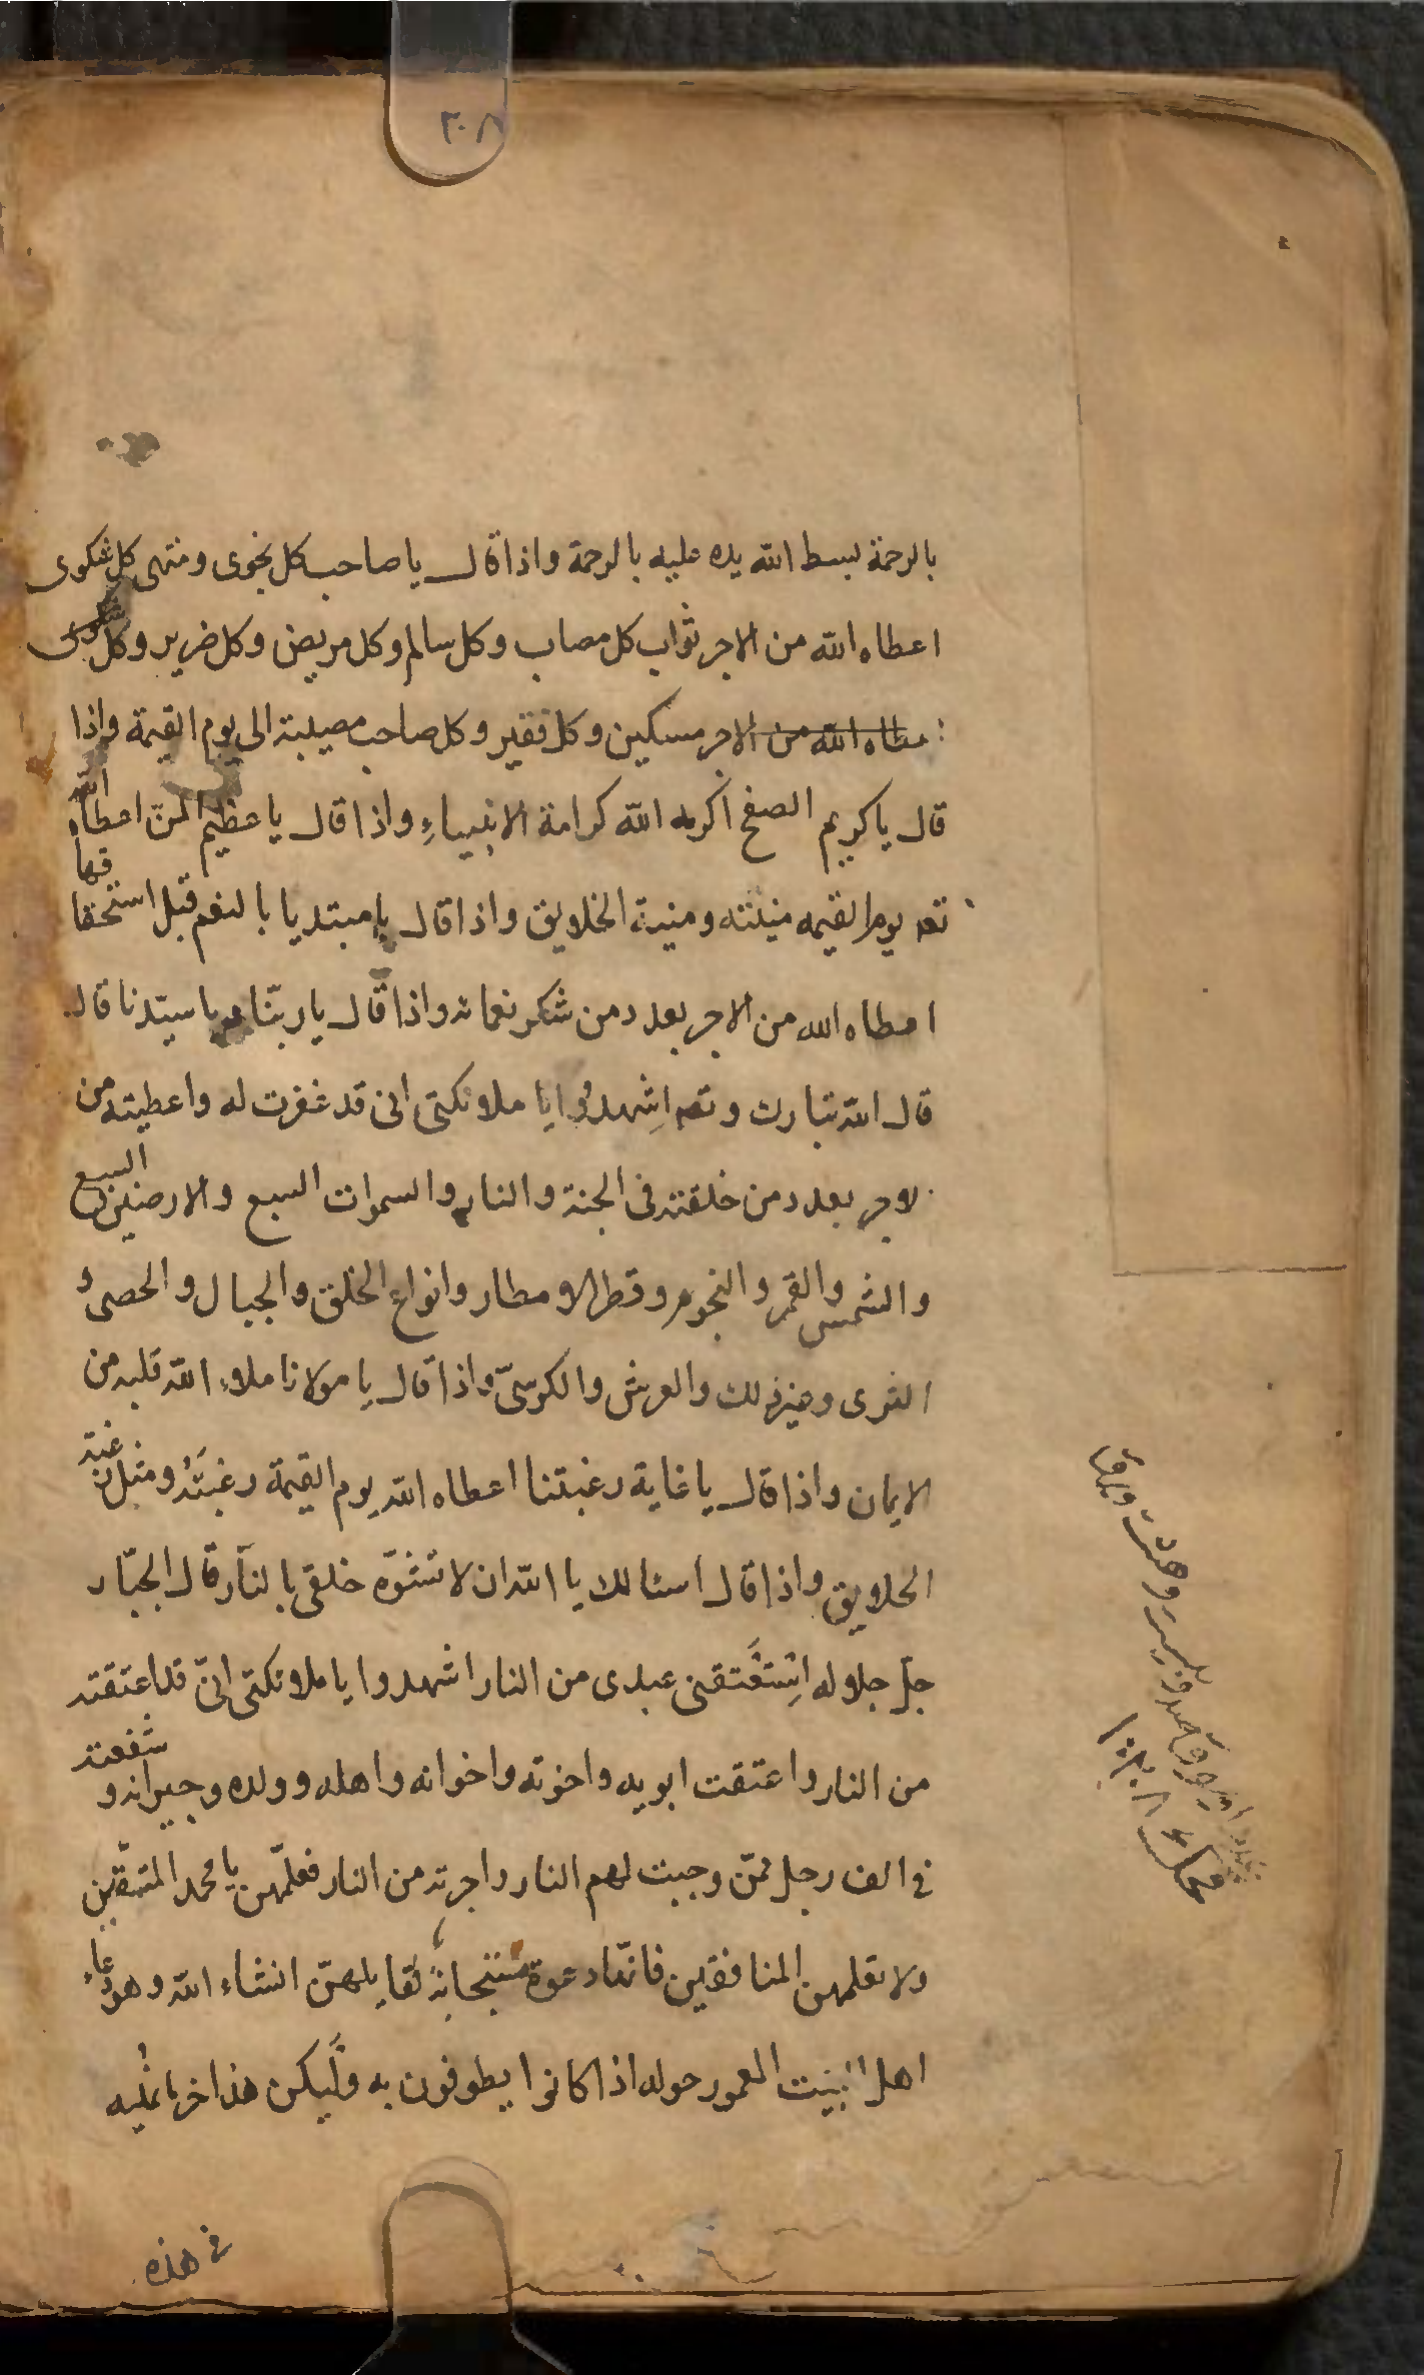 ٢٠٨
بالرحمة بسط الله يده عليه بالرحمة واذا قال يا صاحب كل نجوى ومنتهى كل شكوى
اعطاه الله من الاجر ثواب كل مصاب وكل سالم وكل مريض وكل ضرير وكل
عطاه الله من الاجر مسكين وكل فقير وكل صاحب مصيبة الى يوم القيمة واذا
قال يا كريم الصفح اكرمه الله كرامة الانبياء واذا قال يا عظيم المن اعطاه الله
تعه يوم القيمه منيته ومنية الخلايق واذا قال يا مبتديا بالنعم قبل استحقاقها
اعطاه الله من الاجر بعدد من شكر نعمائه واذا قال يا ربنا ويا سيدنا قال
قال الله تبارك وتعه اشهدوا يا ملائكتى انى قد غفرت له واعطيته من
الاجر بعدد من خلقته فى الجنة والنار والسموات السبع والارضين السبع
والشمس والقمر والنجوم وقطر الامطار وانواع الخلق والجبال والحصى و
الثرى وغير ذلك والعرش والكرسى واذا قال يا مولانا ملاء الله قلبه من
الايمان واذا قال يا غاية رغبتنا اعطاه الله يوم القيمة رغبته ومثل رغبته
الخلايق واذا قال اسئالك يا الله ان لا تشوّه خلقى بالنار قال الجبّار
جل جلاله اِستعتقنى عبدى من النار اشهدوا يا ملائكتى انّى قد اعتقته
من النار واعتقت ابويه واخوته واخوانه واهله وولده وجيرانه و شفعته
فى الف رجل ممّن وجبت لهم النار واجرته من النار فعلّمهن يا محمد المتقين
ولا تعلمهن المنافقين فانّها دعوة مستجابة لقايلهنّ انشاء الله وهو دعاء
اهل البيت المعمور حوله اذا كانوا يطوفون به وليكن هذا اخر ما نمليه
فى هذه